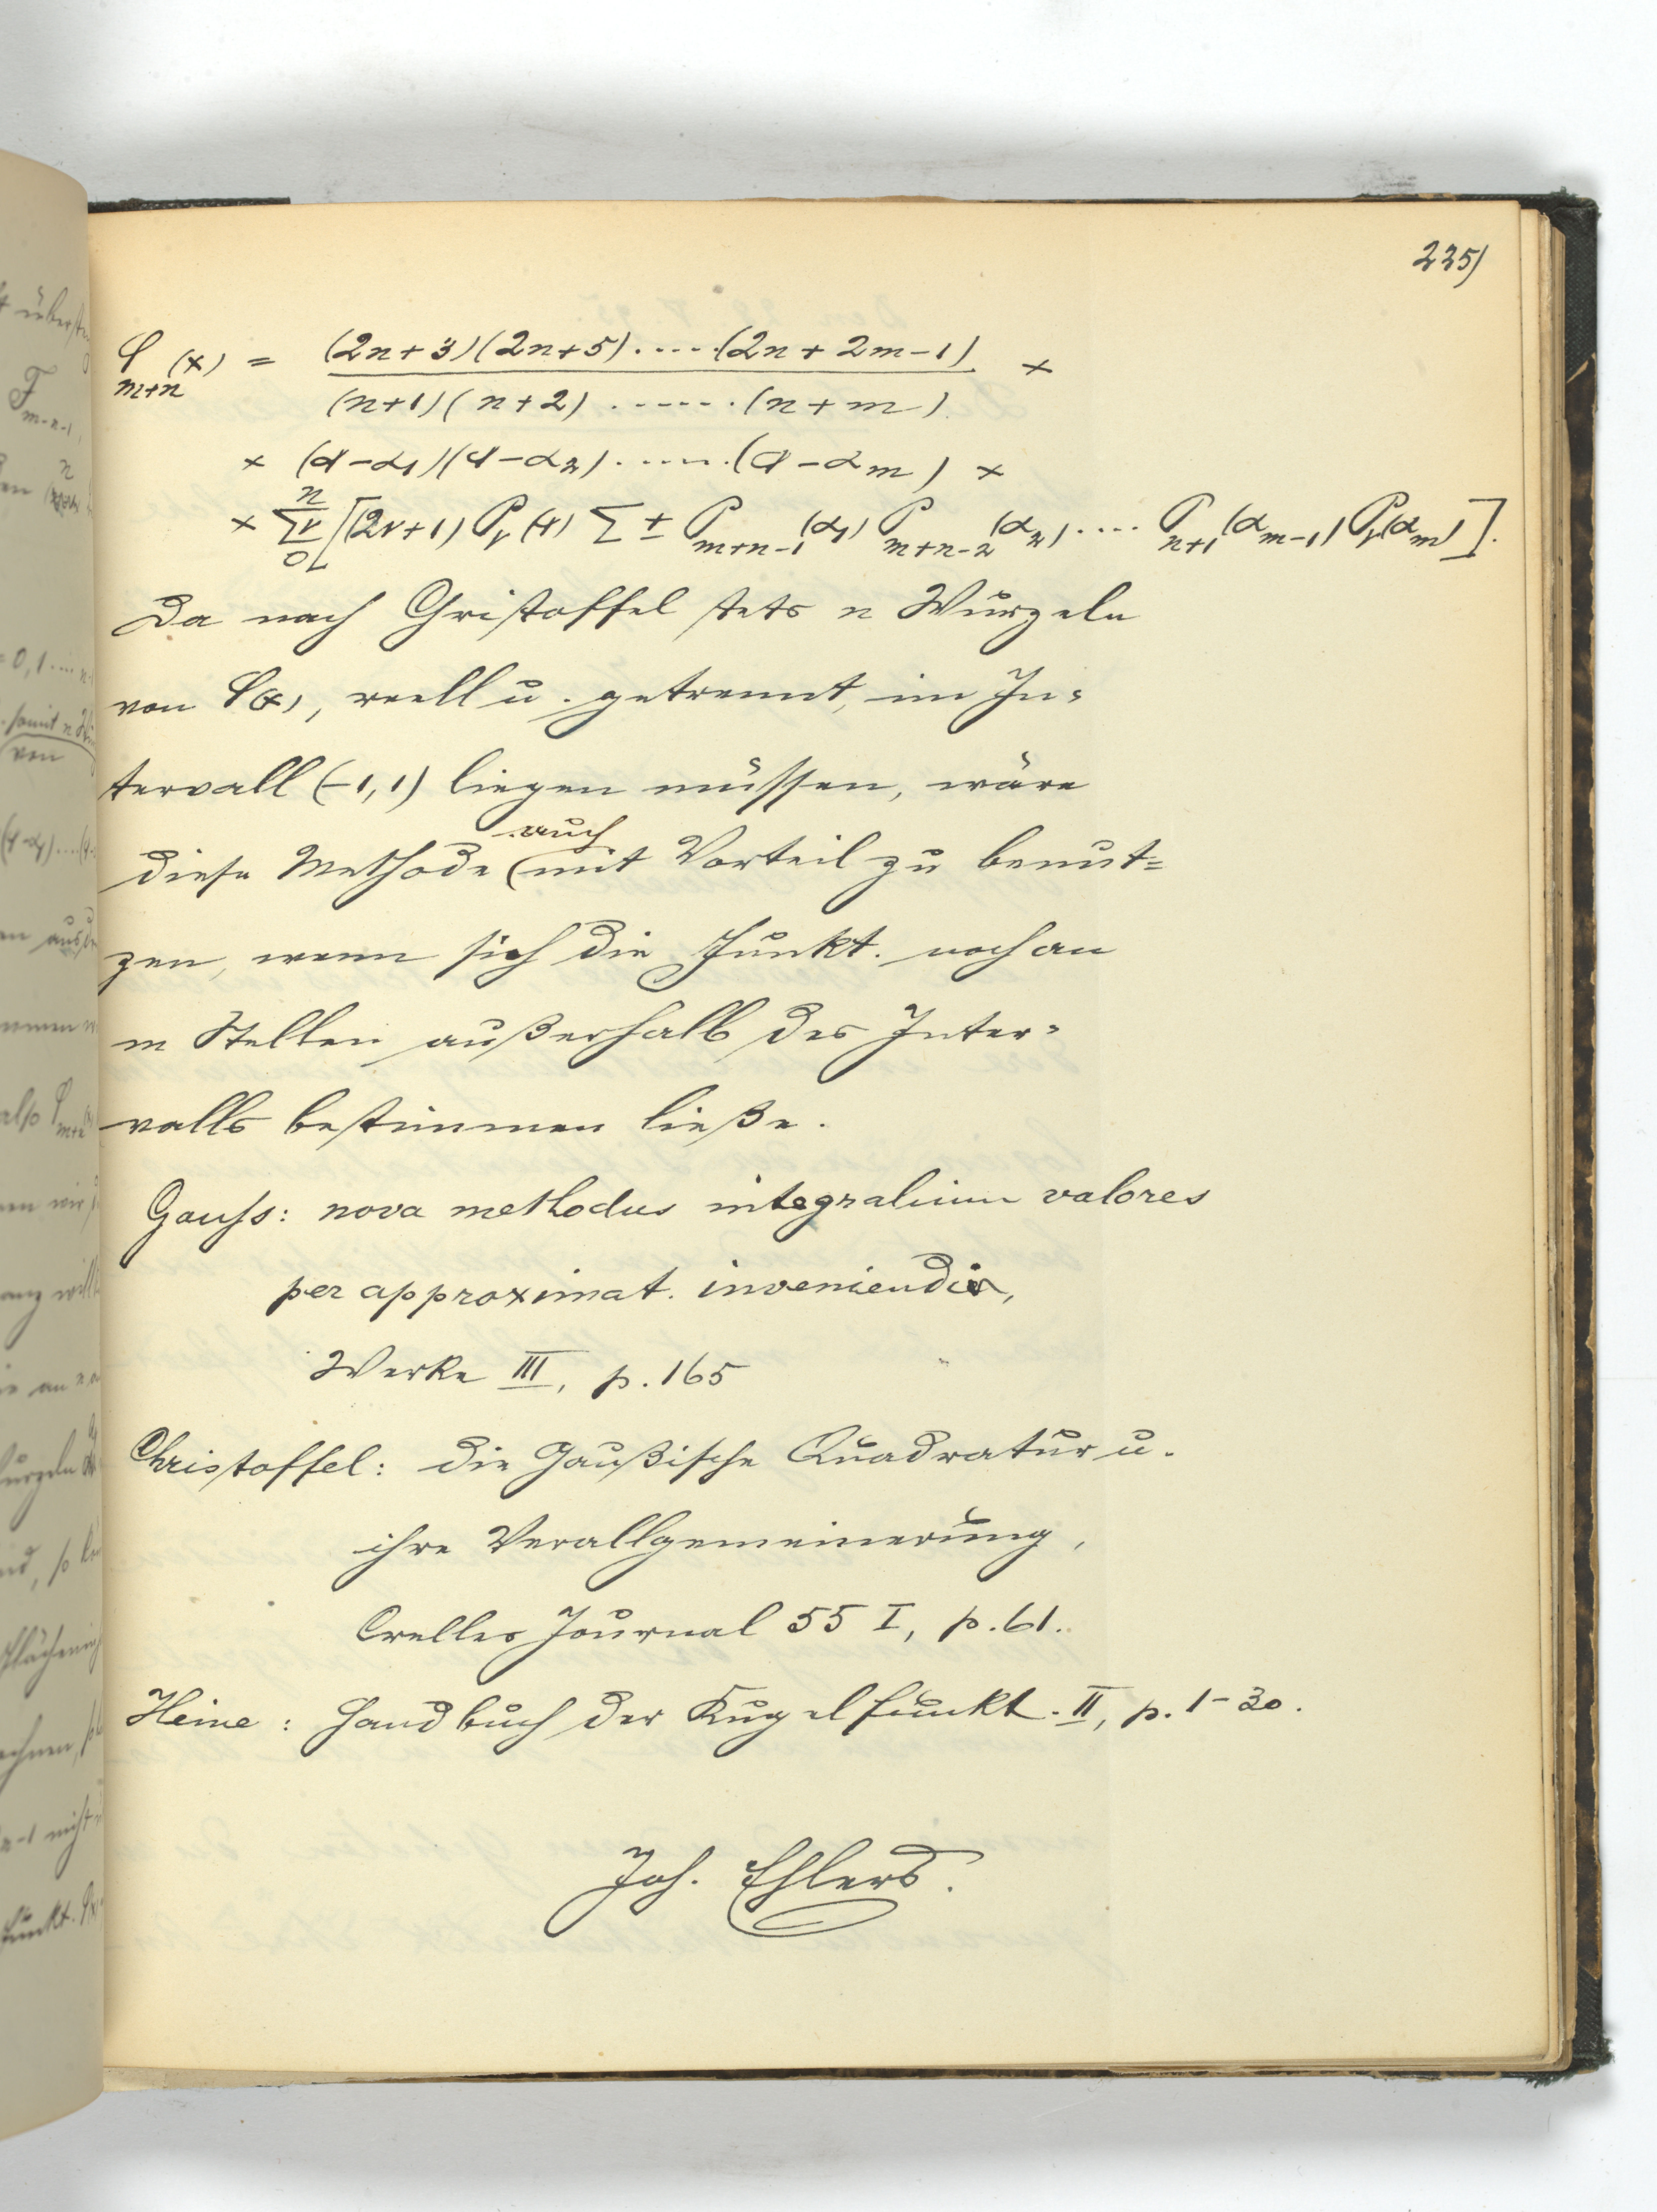 225)
φ_{m+n}(x) = \frac{(2n+3)(2n+5).....(2n+2m-1)}{(n+1)(n+2)......(n+m)} ×
× (x-α_1)(x-α_2).....(x-α_m) ×
× \sum_0^n ν [(2ν+1) P_ν(x) Σ ± P_{m+n-1}(α_1) P_{m+n-2}(α_2).... P_{n+1}(α_{m-1}) P_ν(α_m)].
Da nach Christoffel stets n Wurzeln
von φ(x), reell u. getrennt, im In-
tervall (-1,1) liegen müssen, wäre
auch
diese Methode mit Vorteil zu benut-
zen, wenn sich die Funkt. noch an
m Stellen außerhalb des Inter-
valls bestimmen ließe.
Gauss: nova methodus integralium valores
per approximat. inveniendi,
Werke III, p. 165
Christoffel: die Gaußische Quadratur u.
ihre Verallgemeinerung,
Crelles Journal 55 I, p. 61.
Heine: Handbuch der Kugelfunkt. II, p. 1-30.
Joh. Ehlers.